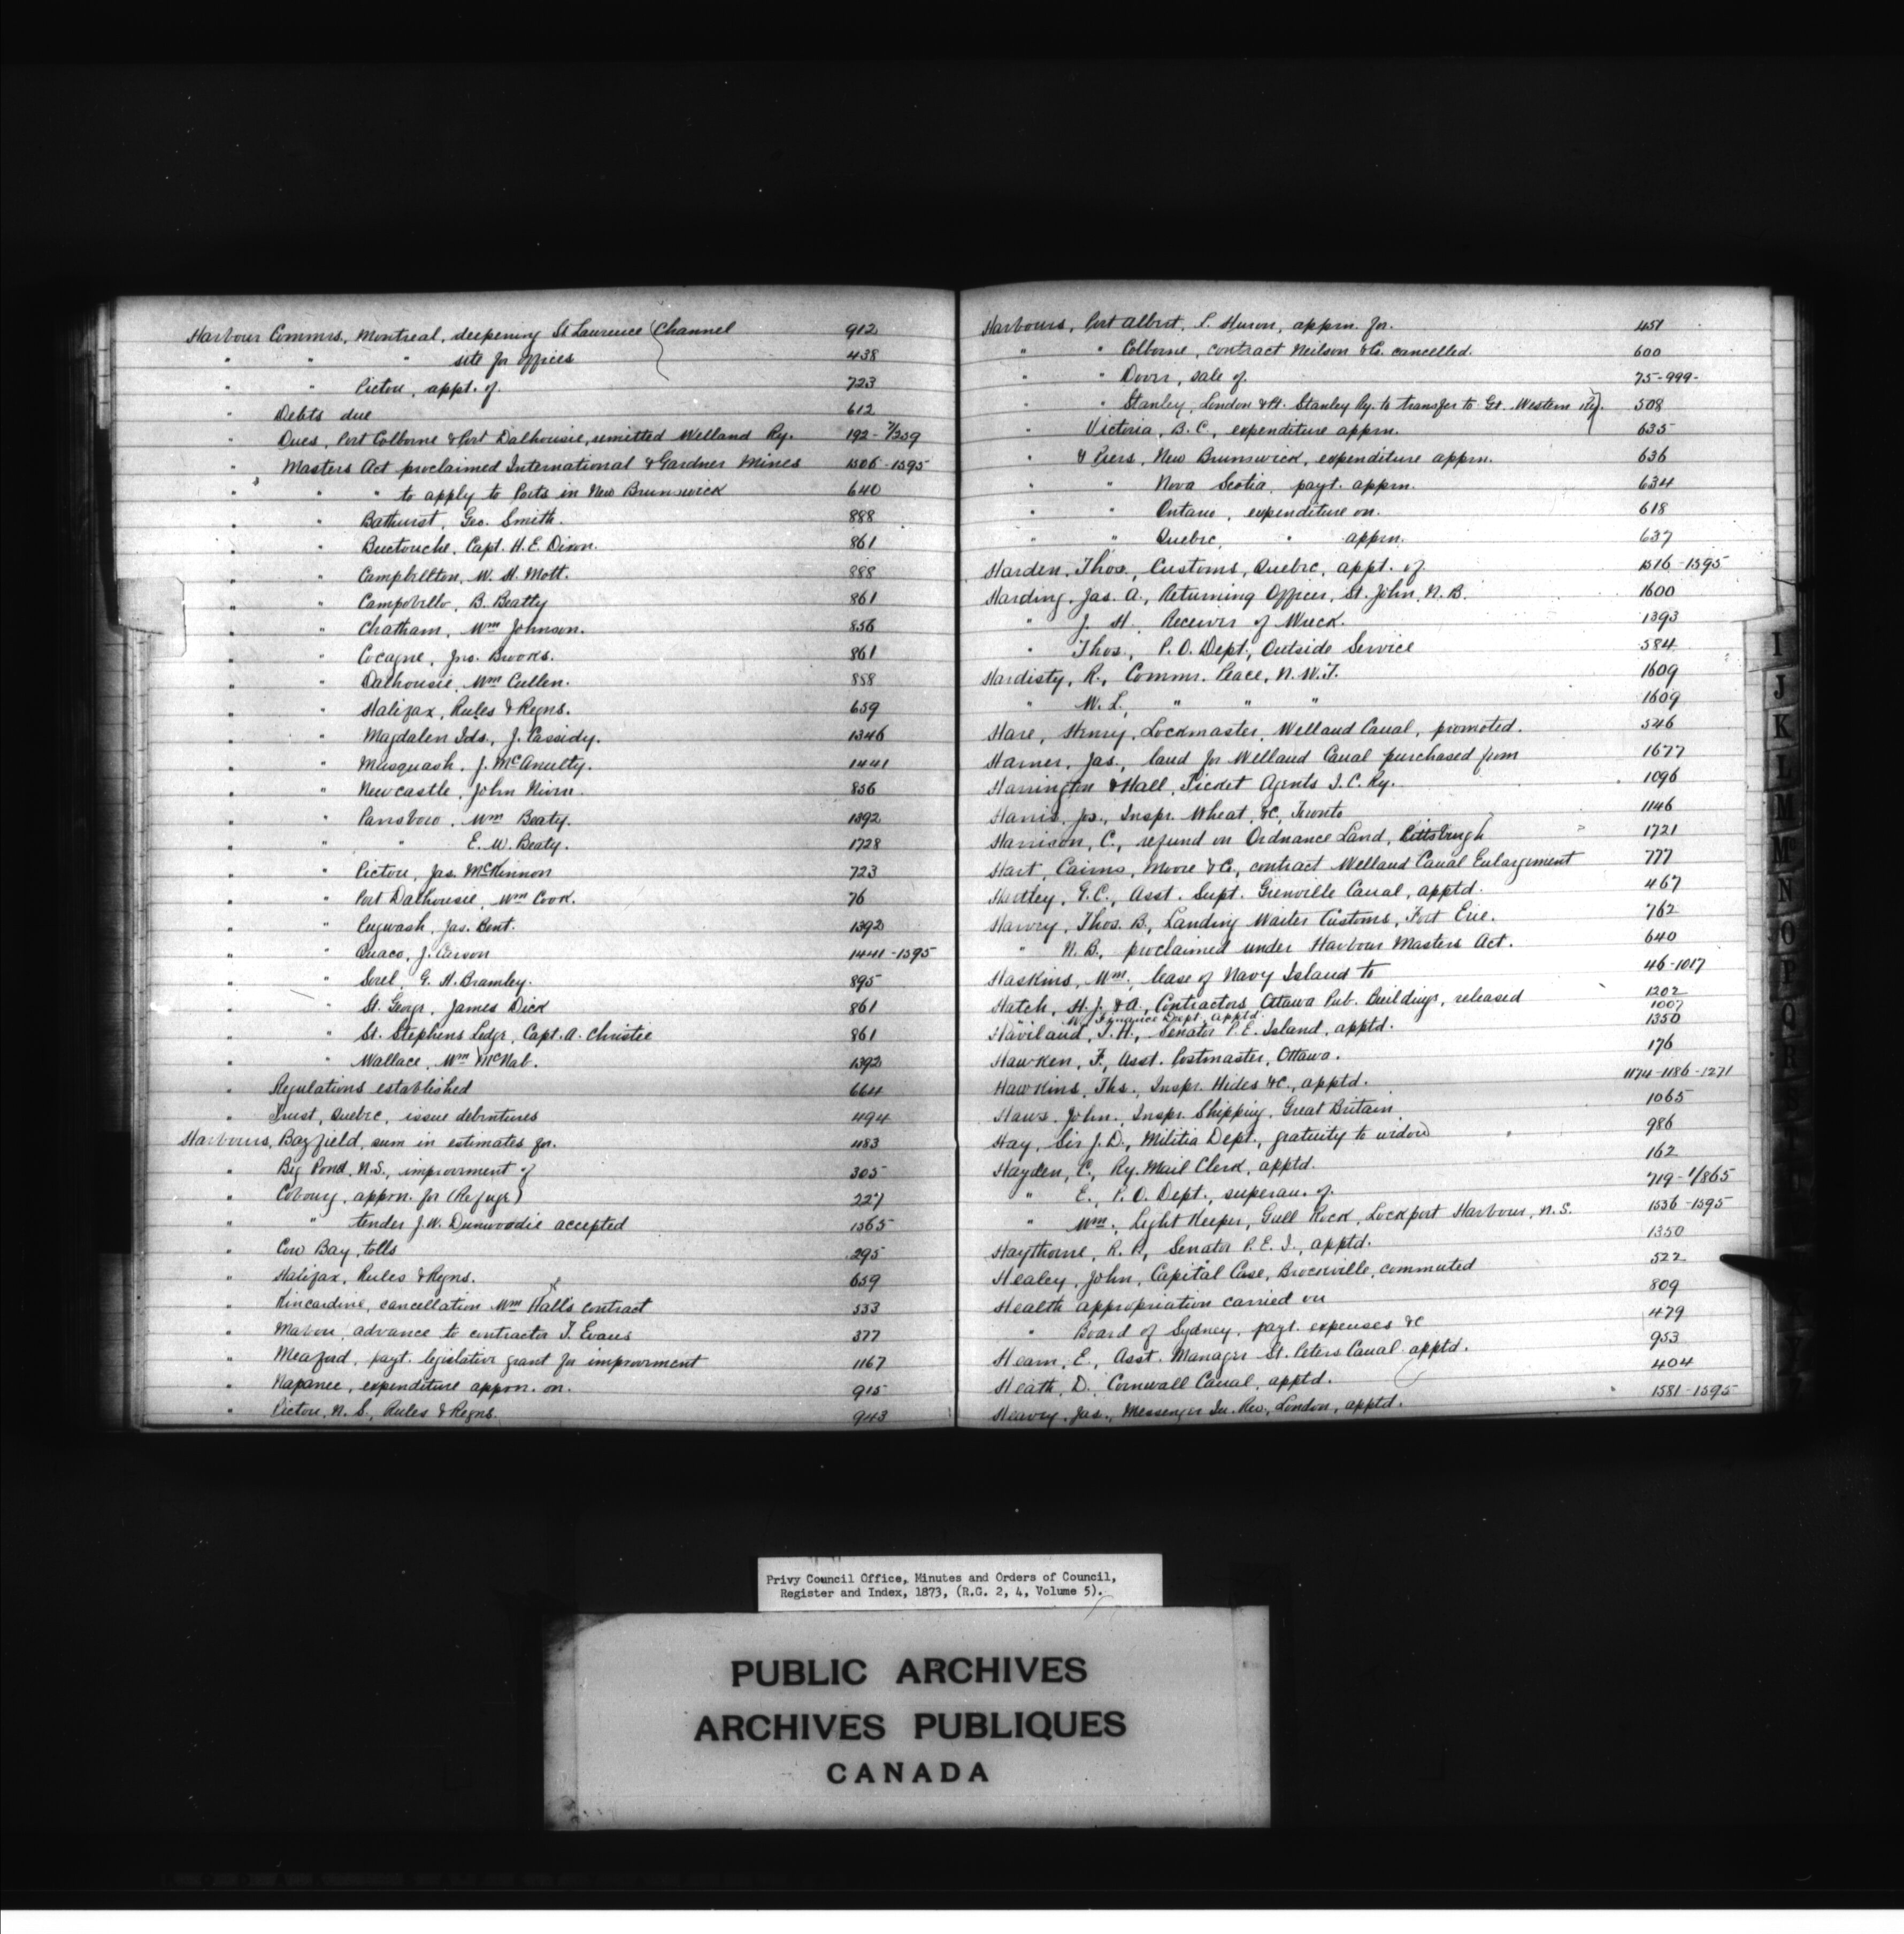 Harbour Commrs., Montreal, deepening St Lawrence Channel 912
" " " site for offices 438
" " Pictou, appt. of. 723
" Debts due 612
" Dues, Port Colborne & Port Dalhousie, remitted Welland Ry. 192-7/259
" Masters Act proclaimed International & Gardner Mines 1506-1595
" " " to apply to Ports in New Brunswick 640
" " Bathurst, Geo. Smith. 888
" " Buctouche, Capt. H.E. Dixon. 861
" " Campbellton, W. H. Mott. 888
" " Campobello, B. Beatty 861
" " Chatham, Wm Johnson. 856
" " Cocagne, Jno. Brooks. 861
" " Dalhousie, Wm Cullen. 858
" " Halifax, Rules & Regns. 659
" " Magdalen Ids., J. Cassidy. 1346
" " Musquash, J. McAnulty. 1441
" " Newcastle, John Niven. 856
" " Parrsboro, Wm Beaty. 1392
" " " E. W. Beaty. 1728
" " Pictou, Jas. McKinnon 723
" " Port Dalhousie, Wm Cook. 76
" " Pugwash, Jas. Bent. 1392
" " Quaco, J. Carson 1441-1595
" " Sorel, G. H. Bramley. 895
" " St. George, James Dick 861
" " St. Stephens Ledge, Capt. A. Christie 861
" " Wallace, Wm McNab. 1392
" Regulations established 664
" Trust, Quebec, issue debentures 494
Harbours, Bayfield, sum in estimates for. 483
" Big Pond, N.S., improvement of 305
" Cobourg, appon. for (Refuge) 227
" " tender J.W. Dunwoodie accepted 1565
" Cow Bay, tolls 295
" Halifax, Rules & Regns. 659
" Kincardine, cancellation Wm Hall's contract 533
" Mabou, advance to contractor T. Evans 377
" Meaford, payt. legislative grant for improvement 1167
" Napanee, expenditure appon. on. 915
" Pictou, N. S., Rules & Regns. 943
Harbours, Port Albert, L. Huron, apprn. for. 451
" " Colborne, contract Neilson & Co. cancelled. 600
" " Dover, sale of. 75-999-
" " Stanley, London & Pt. Stanley Ry. to transfer to Gt. Western Ry. 508
" Victoria, B.C., expenditure apprn. 635
" & Piers, New Brunswick, expenditure apprn. 636
" " Nova Scotia, payt. apprn. 634
" " Ontario, expenditure on. 618
" " Quebec, " apprn. 637
Harden, Thos., Customs, Quebec, appt. of. 1516-1595
Harding, Jas. A., Returning Officer, St. John, N.B. 1600
" J. H. Receiver of Wreck. 1393
" Thos., P.O. Dept., Outside Service 584
Hardisty, R., Commr. Peace, N.W.T. 1609
" W. L., " " " 1609
Hare, Henry, Lockmaster, Welland Canal, promoted. 546
Harner, Jas., land for Welland Canal purchased from 1677
Harrington & Hall, Ticket Agents I.C. Ry. 1096
Harris, Js., Inspr. Wheat, &c, Toronto 1146
Harrison, C., refund on Ordnance Land, Pittsburgh 1721
Hart, Cairns, Moore & Co., contract Welland Canal Enlargement 777
Hartley, G.C., Asst. Supt. Grenville Canal, apptd. 467
Harvey, Thos. B., Landing Waiter Customs, Fort Erie. 762
" N. B., proclaimed under Harbour Masters Act. 640
Haskins, Wm., lease of Navy Island to 46-1017
Hatch, H. J. & A., Contractors, Ottawa Pub. Buildings, released 1202
" W., Finance Dept., apptd. 1007
Haviland, T.H., Senator P.E. Island, apptd. 1350
Hawken, F., Asst. Postmaster, Ottawa. 176
Hawkins, Ths., Inspr. Hides &c., apptd. 1174-1186-1271
Haws, John, Inspr. Shipping, Great Britain 1065
Hay, Sir J.D., Militia Dept., gratuity to widow 986
Hayden, C., Ry. Mail Clerk, apptd. 162
" E., P.O. Dept., superan. of. 719-1/865
" Wm., Light Keeper, Gull Rock, Lockport Harbour, N.S. 1536-1595
Haythorne, R. P., Senator P.E.I., apptd. 1350
Healey, John, Capital Case, Brockville, commuted 522
Health appropriation carried on 809
" Board of Sydney, payt. expenses &c 479
Hearn, E., Asst. Manager St. Peters Canal apptd. 953
Heath, D., Cornwall Canal, apptd. 404
Heavey, Jas., Messenger In. Rev., London, apptd. 1581-1595
I
J
K
L
M
M
N
O
P
Q
R
Privy Council Office, Minutes and Orders of Council,
Register and Index, 1873, (R.G. 2, 4, Volume 5).
PUBLIC ARCHIVES
ARCHIVES PUBLIQUES
CANADA